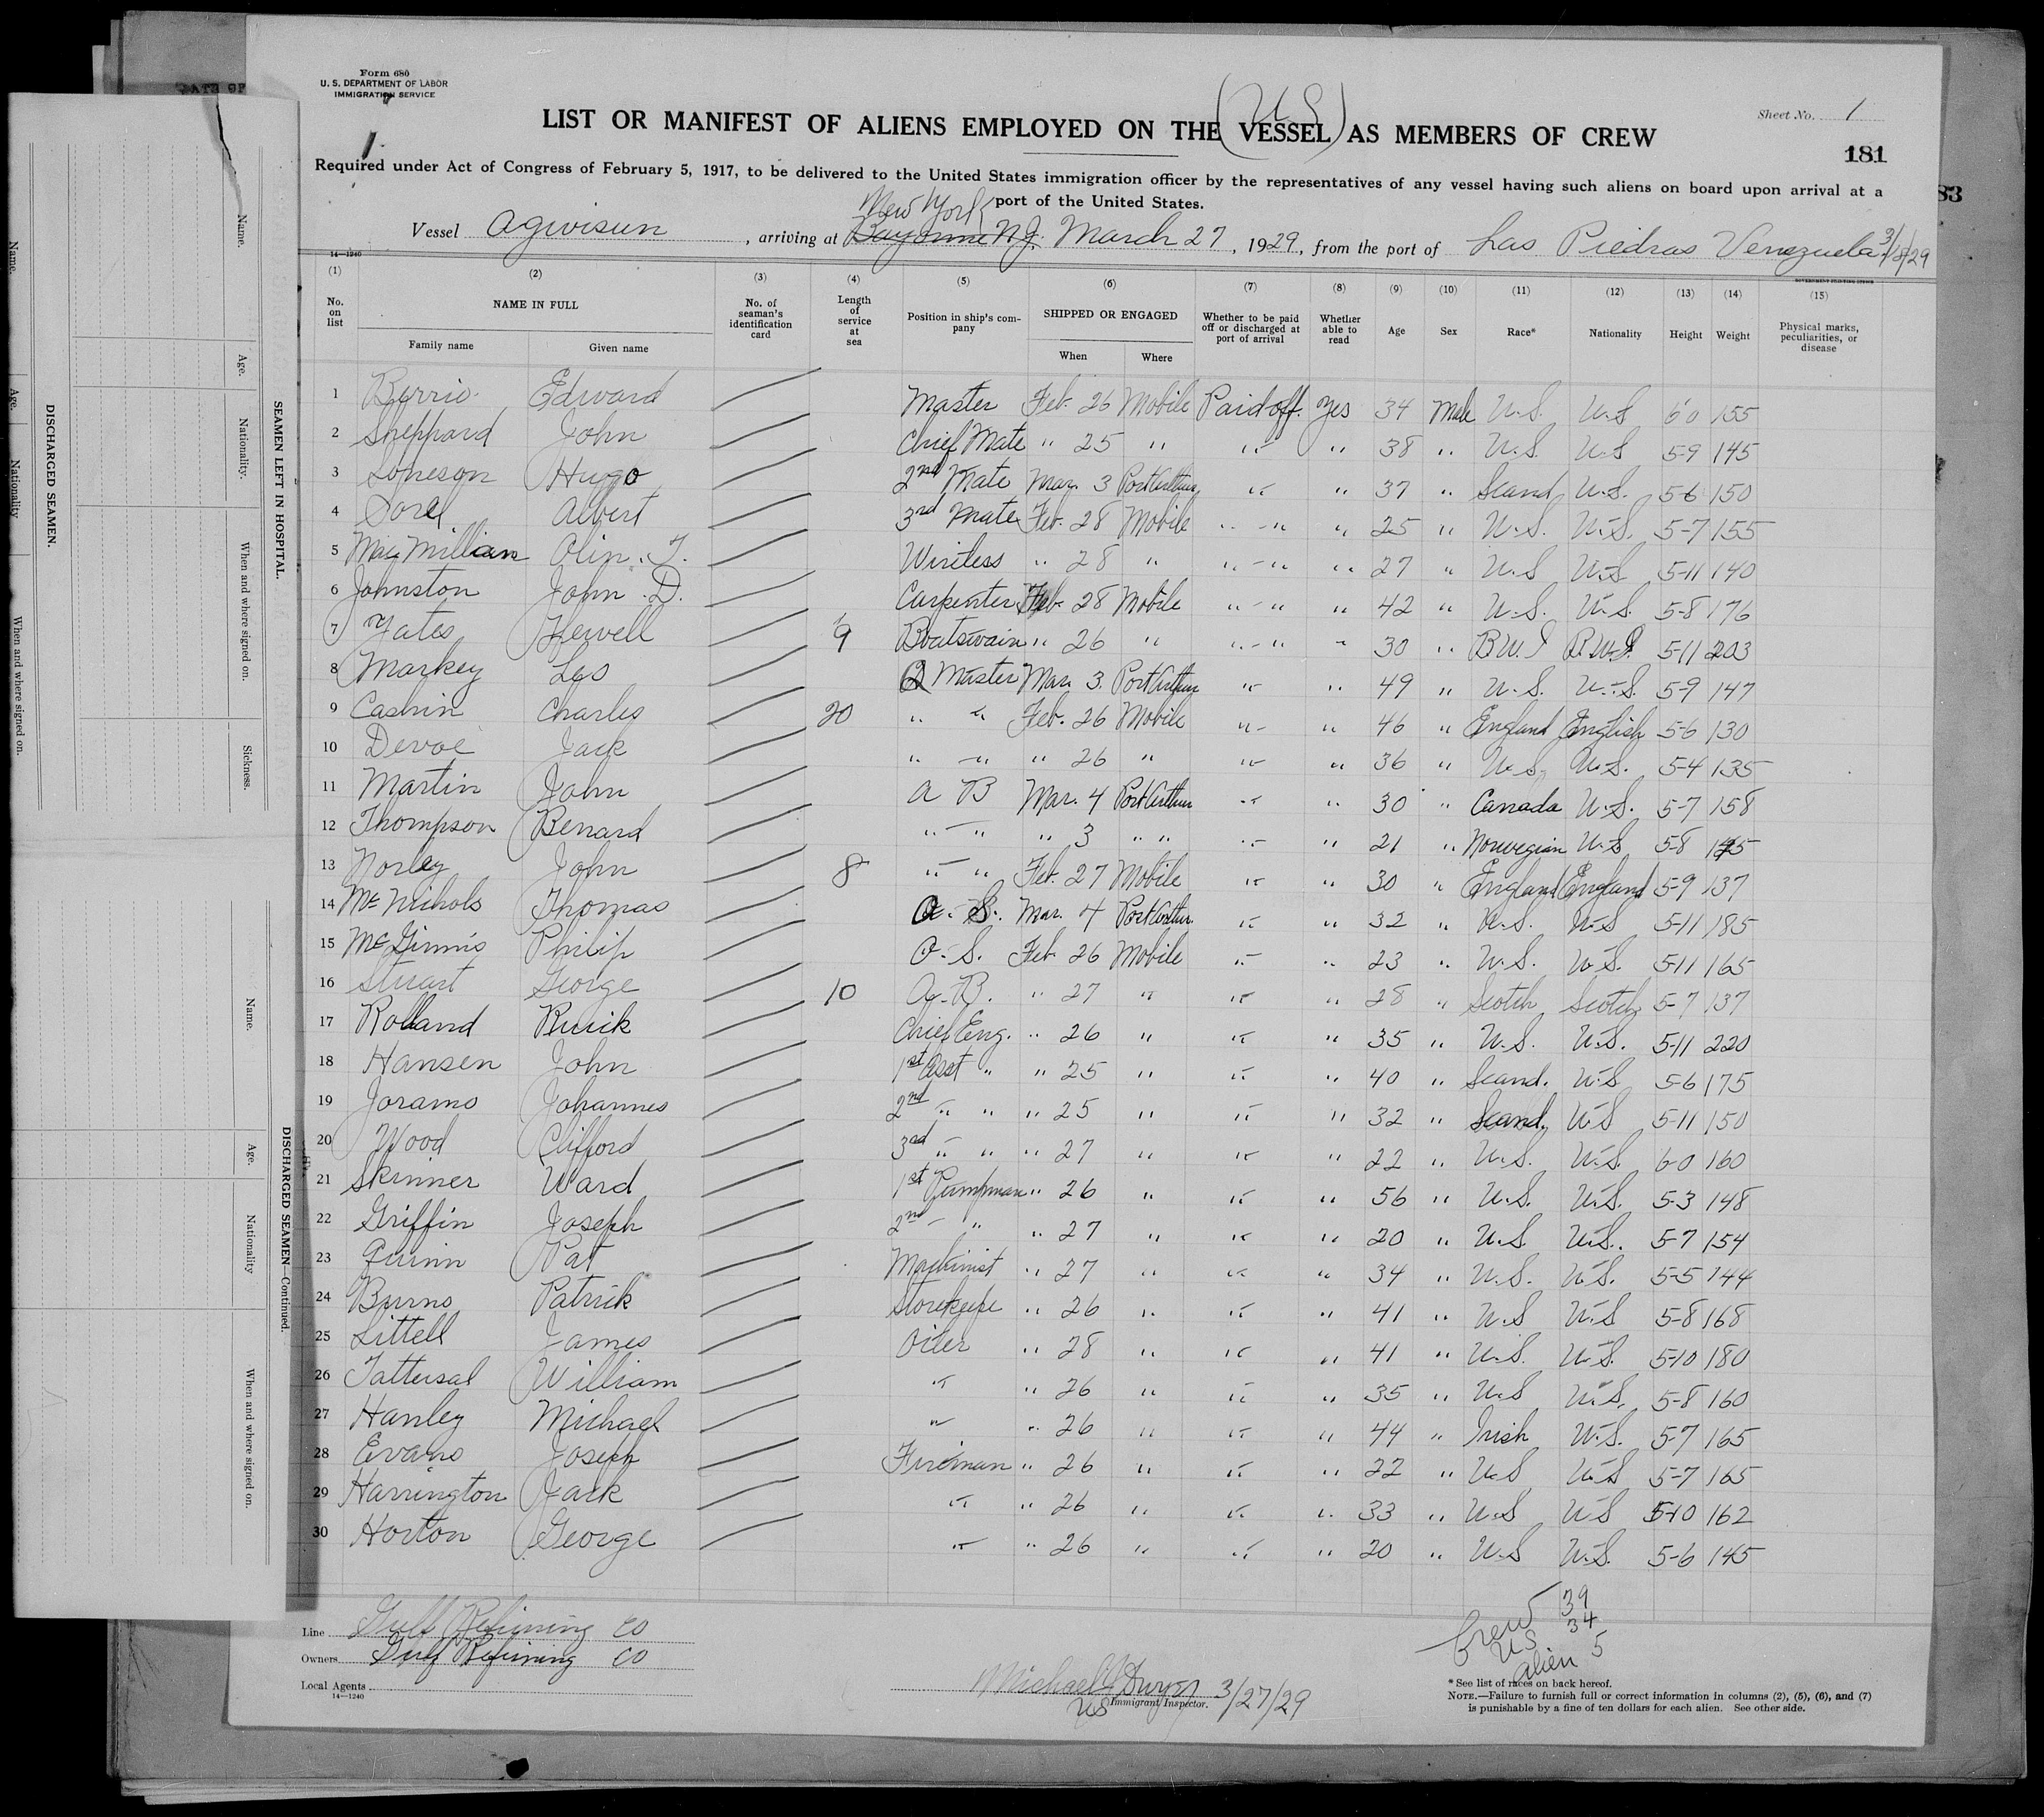 Form 680
U. S. DEPARTMENT OF LABOR
IMMIGRATION SERVICE
(U S)
Sheet No. 1
LIST OR MANIFEST OF ALIENS EMPLOYED ON THE VESSEL AS MEMBERS OF CREW
181
83
Required under Act of Congress of February 5, 1917, to be delivered to the United States immigration officer by the representatives of any vessel having such aliens on board upon arrival at a
port of the United States.
New York
Vessel Agwisun, arriving at Bayonne N.J. March 27, 1929, from the port of Las Piedras Venezuela 3/18/29
14—1240
(1) (2) (3) (4) (5) (6) (7) (8) (9) (10) (11) (12) (13) (14) (15)
No. on list NAME IN FULL Family name Given name No. of seaman's identification card Length of service at sea Position in ship's company SHIPPED OR ENGAGED When Where Whether to be paid off or discharged at port of arrival Whether able to read Age Sex Race* Nationality Height Weight Physical marks, peculiarities, or disease
1 Berrio Edward Master Feb. 26 Mobile Paid off. Yes 34 Male U.S. U.S 6 0 155
2 Sheppard John Chief Mate " 25 " " " 38 " U.S. U.S 5-9 145
3 Hugo 2nd Mate Mar. 3 Port Arthur " " 37 " Scand U.S. 5-6 150
4 Sorel Albert 3rd Mate Feb. 28 Mobile " " 25 " U.S. U.S. 5-7 155
5 MacMillian Olin. T. Wireless " 28 " " " 27 " U.S U.S 5-11 140
6 Johnston John. D. Carpenter Feb. 28 Mobile " " 42 " U.S. U.S. 5-8 176
7 Yates Hewell 9 Boatswain " 26 " " " 30 " B.W.I B.W.I. 5-11 203
8 Markey Leo Q Master Mar. 3. Port Arthur " " 49 " U.S. U.S. 5-9 147
9 Cashin Charles 20 " " Feb. 26 Mobile " " 46 " England English 5-6 130
10 Devoe Jack " " " 26 " " " 36 " U.S. U.S. 5-4 135
11 Martin John A B Mar. 4 Port Arthur " " 30 " Canada U.S. 5-7 158
12 Thompson Benard " " " 3 " " " " 21 " Norwegian U.S 5-8
13 Norley John 8 " " Feb. 27 Mobile " " 30 " England England 5-9 137
14 McNichols Thomas O. S. Mar. 4 Port Arthur. " " 32 " U.S. U.S 5-11 185
15 McGinnis Philip O. S. Feb. 26 Mobile " " 23 " U.S. U.S. 5-11 165
16 Stuart George 10 A. B. " 27 " " " 28 " Scotch Scotch 5-7 137
17 Rolland Ruick Chief Eng. " 26 " " " 35 " U.S. U.S. 5-11 220
18 Hansen John 1st Asst " " 25 " " " 40 " Scand. U.S 5-6 175
19 Joramo Johannes 2nd " " " 25 " " " 32 " Scand. U.S 5-11 150
20 Wood Clifford 3rd " " " 27 " " " 22 " U.S. U.S. 6-0 160
21 Skinner Ward 1st Pumpman " 26 " " " 56 " U.S. U.S. 5-3 148
22 Griffin Joseph 2nd " " 27 " " " 20 " U.S. U.S. 5-7 154
23 Quinn Pat Machinist " 27 " " " 34 " U.S. U.S. 5-5 144
24 Burns Patrick Storekeepe " 26 " " " 41 " U.S U.S 5-8 168
25 Littell James Oiler " 28 " " " 41 " U.S. U.S. 5-10 180
26 Tattersal William " " 26 " " " 35 " U.S U.S. 5-8 160
27 Hanley Michael " " 26 " " " 44 " Irish U.S. 5-7 165
28 Evans Joseph Fireman " 26 " " " 22 " U.S U.S 5-7 165
29 Harrington Jack " " 26 " " " 33 " U.S U.S 5-10 162
30 Horton George " " 26 " " " 20 " U.S U.S. 5-6 145
Crew 39
US 34
Alien 5
Line Gulf Refining Co
Owners Gulf Refining Co
Local Agents
14—1240
Michael J Dwyer 3/27/29
US Immigrant Inspector.
* See list of races on back hereof.
NOTE.—Failure to furnish full or correct information in columns (2), (5), (6), and (7)
is punishable by a fine of ten dollars for each alien. See other side.
SEAMEN LEFT IN HOSPITAL.
Name.
Age.
Nationality.
When and where signed on.
Sickness.
DISCHARGED SEAMEN.
Name.
Age.
Nationality
When and where signed on.
DISCHARGED SEAMEN—Continued.
Name.
Age.
Nationality
When and where signed on.